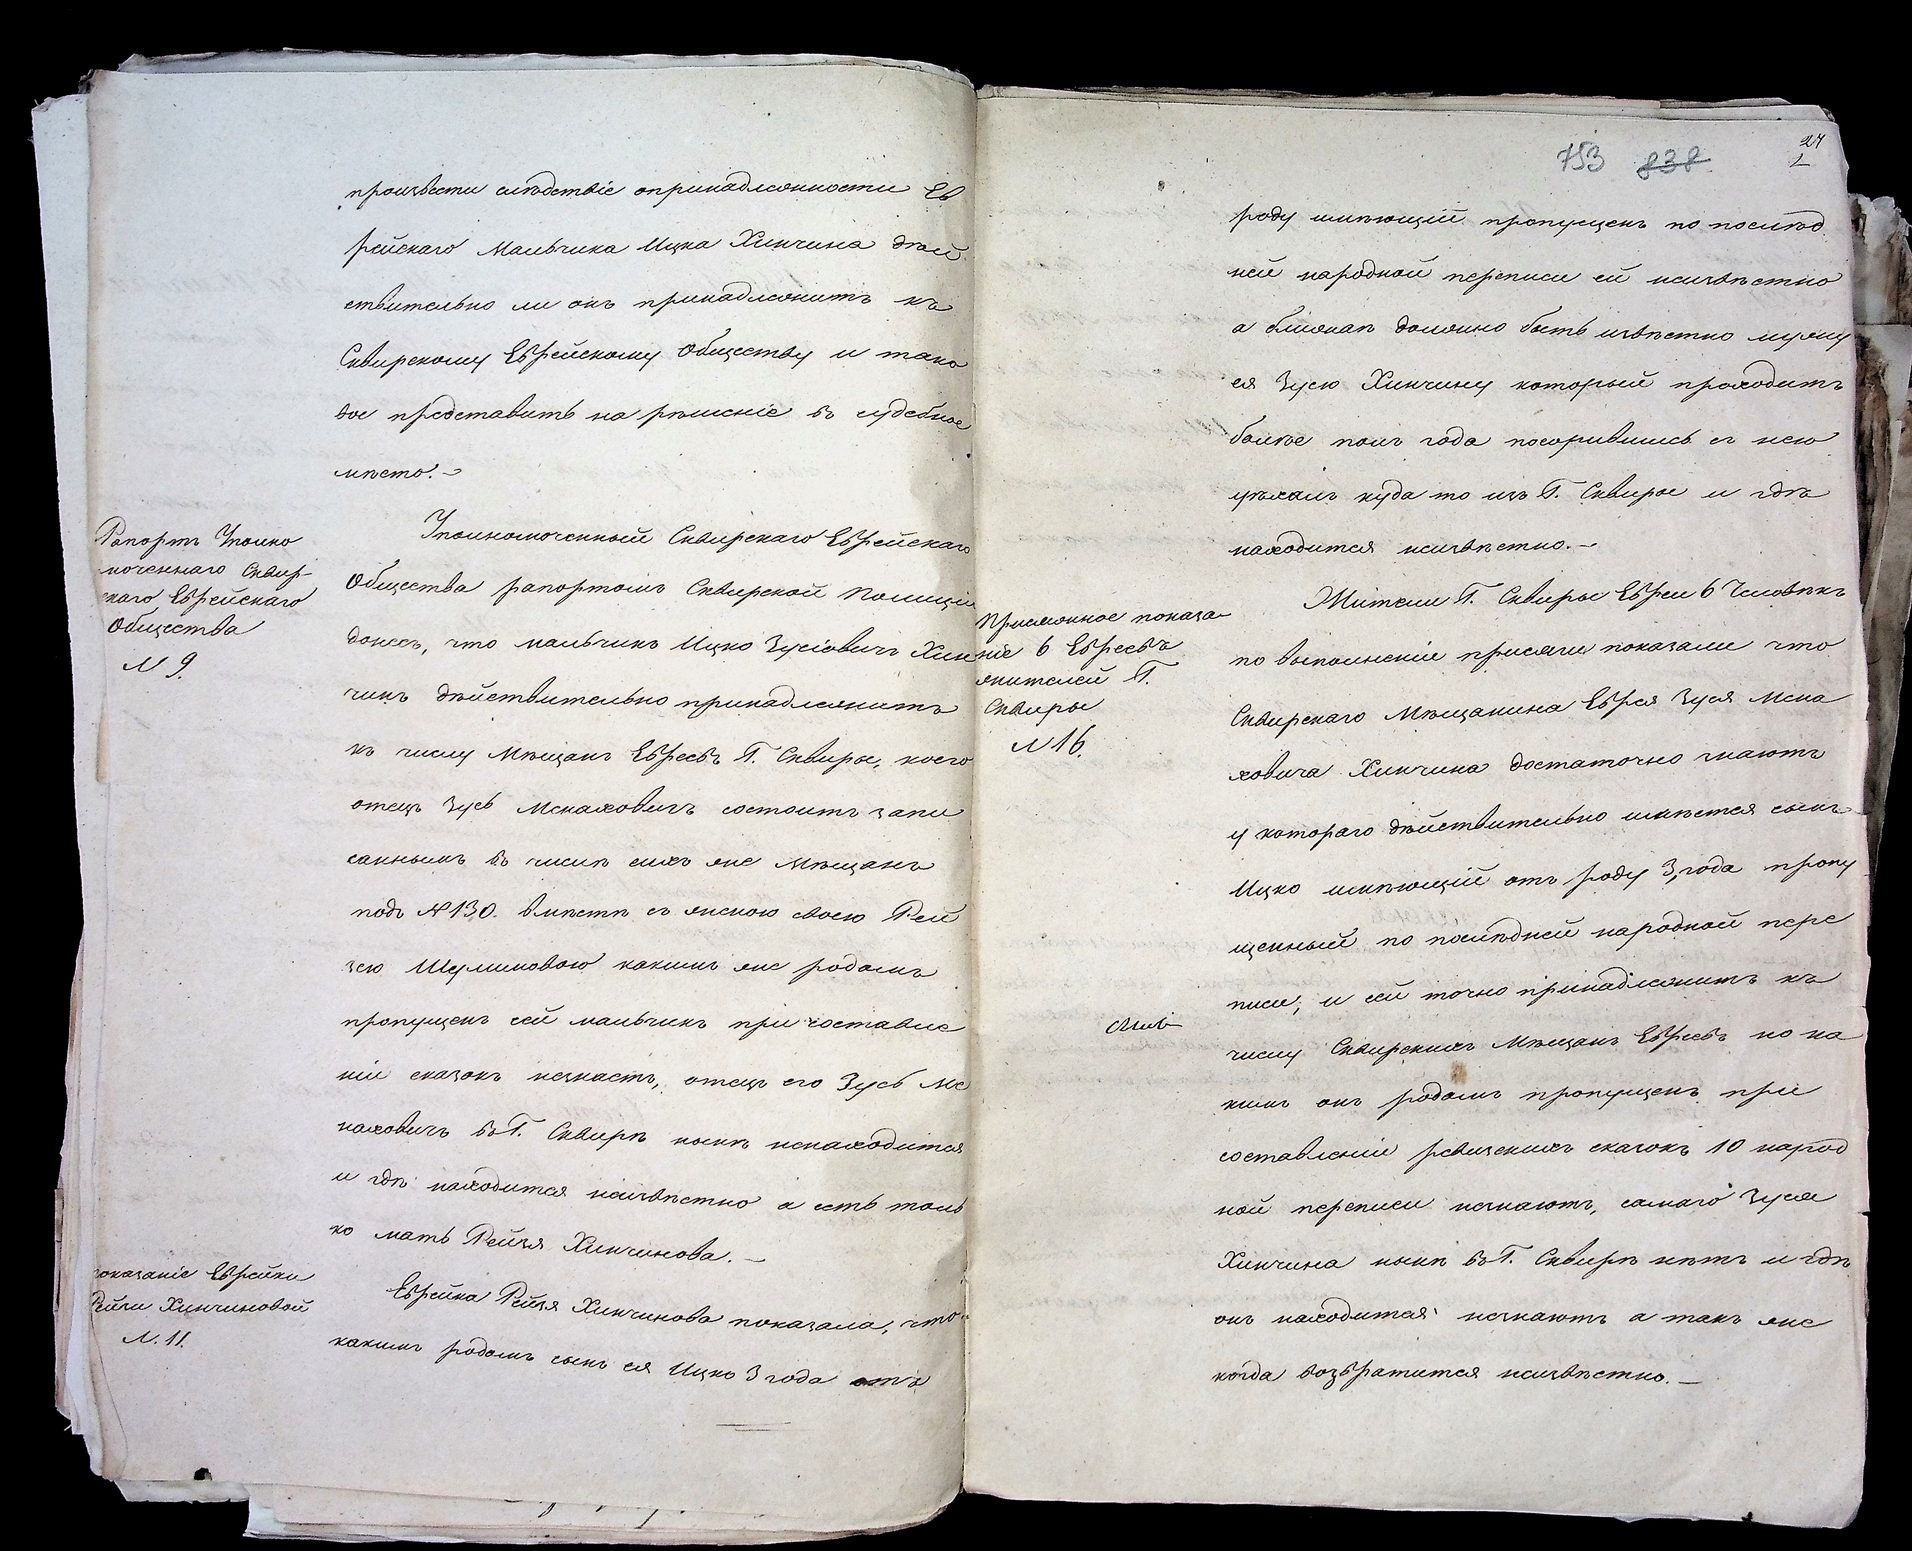 произвести слѣдствіе опринадлежности Ев
рейскаго Мальчика Ицка Хинчина дѣй
ствительно ли онъ принадлежитъ къ
Сквирскому Еврейскому Обществу и тако
вое представить на рѣшеніе въ судебное
мѣсто.—
Рапортъ Уполно
моченнаго Сквир-
скаго Еврейскаго
Общества
№ 9.
Уполномоченный Сквирскаго Еврейскаго
Общества рапортомъ Сквирской Полиціи
донесъ, что мальчикъ Ицко Зусіовичъ Хин
чинъ дѣйствительно принадлежитъ
къ числу Мѣщанъ Евреевъ Г. Сквиры, коего
отецъ Зусь Менаховичъ состоитъ запи
саннымъ въ числѣ сихъ же Мѣщанъ
подъ №130. вмѣстѣ съ женою своею Рей
зею Шулимовою какимъ же родомъ
пропущенъ сей мальчикъ при составле
ніи сказокъ незнаетъ, отецъ его Зусь Ме
наховичъ въ Г. Сквирѣ нынѣ ненаходится
и гдѣ находится неизвѣстно а есть толь
ко мать Рейзя Хинчинова.—
показаніе Еврейки
Рейзи Хинчиновой
№. 11.
Еврейка Рейзя Хинчинова показала, что
какимъ родомъ сынъ ея Ицко 3 года отъ
753 838
27
1
роду имѣющій пропущенъ по послѣд
ней народной переписи ей неизвѣстно
а должно быть извѣстно мужу
ея Зусю Хинчину который проходитъ
болѣе полъ года посорившись съ нею
уѣхалъ куда то изъ Г. Сквиры и гдѣ
находится неизвѣстно.—
Присяжное показа
ніе 6 Евреевъ
жителей Г.
Сквиры
№ 16.
Жители Г. Сквиры Евреи 6 Человѣкъ
по выполненіи присяги показали что
Сквирскаго Мѣщанина Еврея Зуся Мена
ховича Хинчина достаточно знаютъ
у котораго дѣйствительно имѣется сынъ
Ицко имѣющій отъ роду 3, года пропу
щенный по послѣдней народной пере
писи, и сей точно принадлежитъ къ
числу Сквирскихъ Мѣщанъ Евреевъ но ка
кимъ онъ родомъ пропущенъ при
составленіи ревизскихъ сказокъ 10 народ
ной переписи незнаютъ, самаго Зуся
Хинчина нынѣ въ Г. Сквирѣ нѣтъ и гдѣ
онъ находится незнаютъ а такъ же
когда возвратится неизвѣстно.—